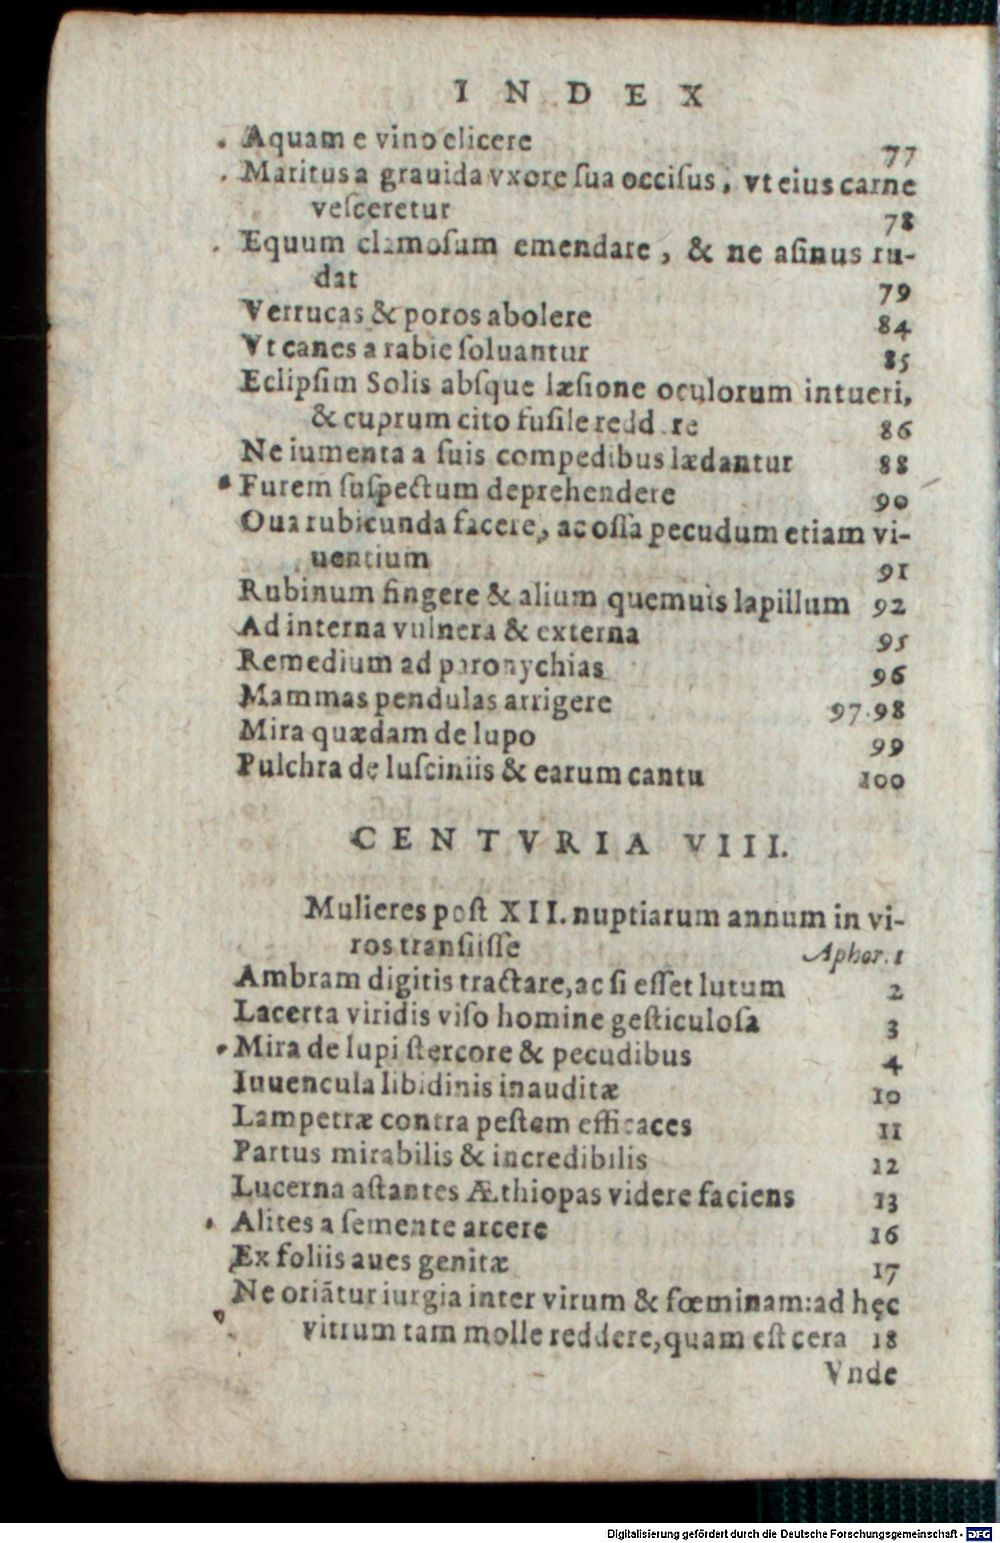 INDEX
Aquam e vino elicere 77
Maritus a grauida vxore ſua occiſus, vt eius carne
veſceretur 78
Equum clamoſum emendare, & ne aſinus ru-
dat 79
Verrucas & poros abolere 84
Vt canes a rabie ſoluantur 85
Eclipſim Solis abſque læſione oculorum intueri,
& cuprum cito fuſile redd re 86
Ne iumenta a ſuis compedibus lædantur 88
Furem ſuſpectum deprehendere 90
Oua rubicunda facere, ac oſſa pecudum etiam vi-
uentium 91
Rubinum fingere & alium quemuis lapillum 92
Ad interna vulnera & externa 95
Remedium ad paronychias 96
Mammas pendulas arrigere 97.98
Mira quædam de lupo 99
Pulchra de luſciniis & earum cantu 100
CENTVRIA VIII.
Mulieres poſt XII. nuptiarum annum in vi-
ros tranſiiſſe Aphor. 1
Ambram digitis tractare, ac ſi eſſet lutum 2
Lacerta viridis viſo homine geſticuloſa 3
Mira de lupi ſtercore & pecudibus 4
Iuuencula libidinis inauditæ 10
Lampetræ contra peſtem efficaces 11
Partus mirabilis & incredibilis 12
Lucerna aſtantes Æthiopas videre faciens 13
Alites a ſemente arcere 16
Ex foliis aues genitæ 17
Ne oriãtur iurgia inter virum & fœminam: ad hęc
vitrum tam molle reddere, quam eſt cera 18
Vnde
Digitalisierung gefördert durch die Deutsche Forschungsgemeinschaft - DFG